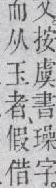 文按虞書璪字
而从玉者假借